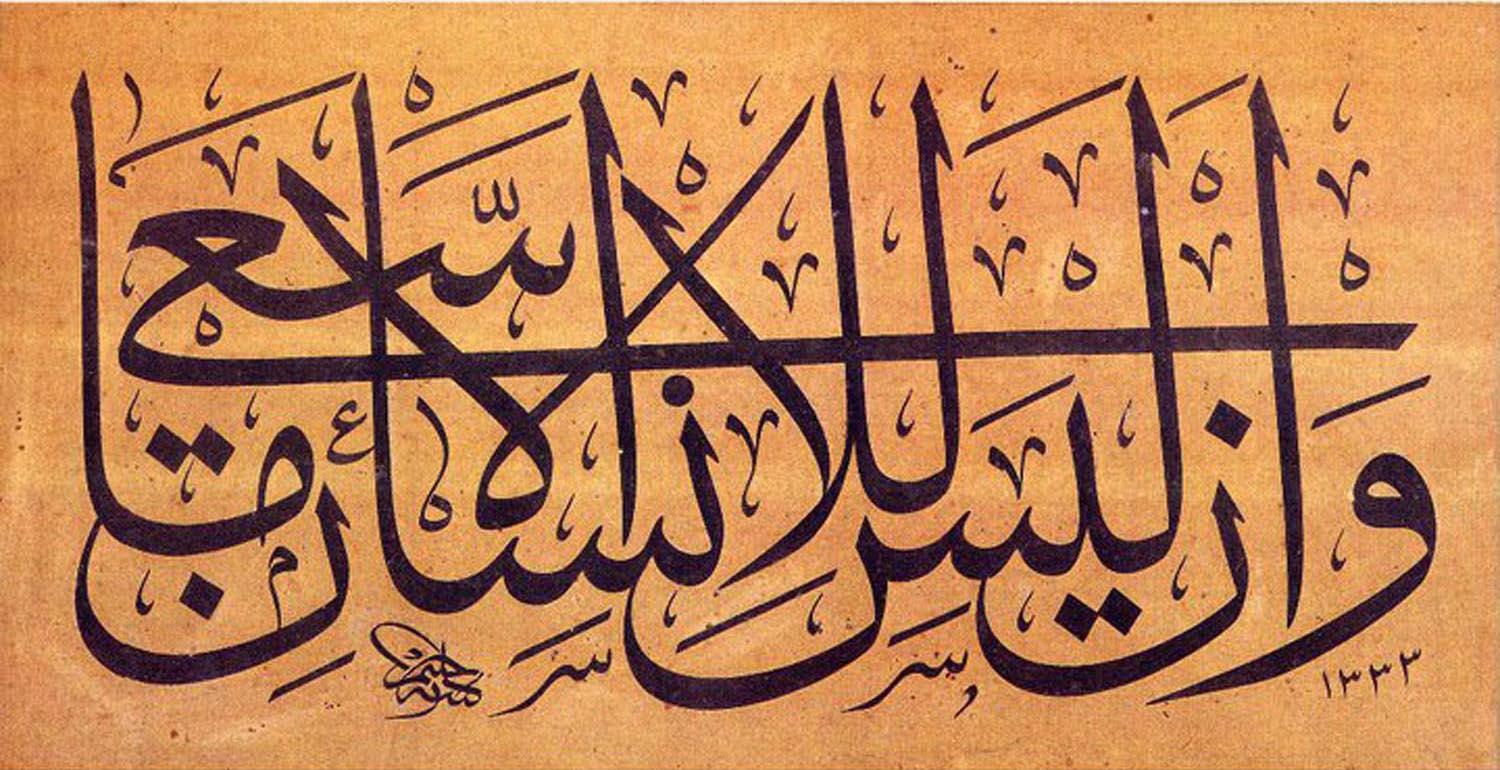 وَأَنْ لَيْسَ لِلْإِنْسَانِ إِلَّا مَا سَعَى
١٣٣٣